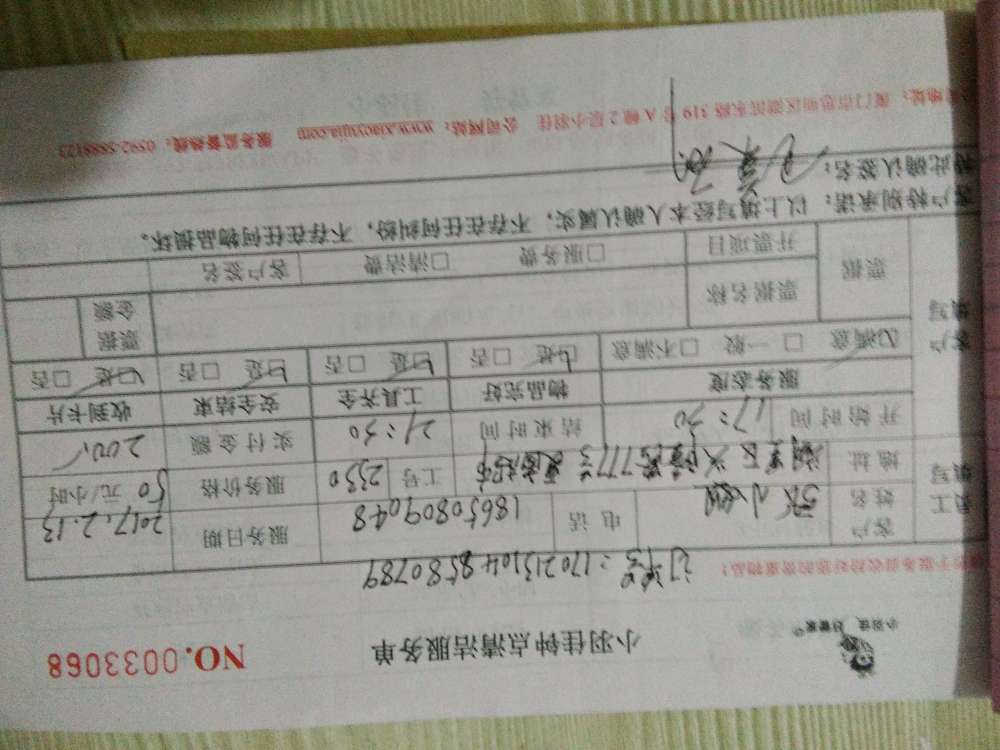 小羽佳 好管家
小羽佳钟点清洁服务单
NO.0033068
订单号:1702131048580789
员工填写
客户姓名 张小姐 电话 18650809048 服务日期 2017.2.13
地址 湖里区兴隆路777号 工号 2330 服务价格 50元/小时
开始时间 17:30 结束时间 21:30 实付金额 200.
客户填写
服务态度 物品完好 工具齐全 安全结束 收到卡片
□满意 □一般 □不满意 □是 □否 □是 □否 □是 □否 □是 □否
票据 票据名称 票据金额
开票项目 □服务费 □清洁费 客户签名
客户特别承诺:以上填写经本人确认属实,不存在任何纠纷,不存在任何物品损坏。
特此确认签名:
公司地址:厦门市思明区湖滨东路319号A幢2层小羽佳 公司网站:www.xiaoyujia.com 服务监督热线:0592-5888123